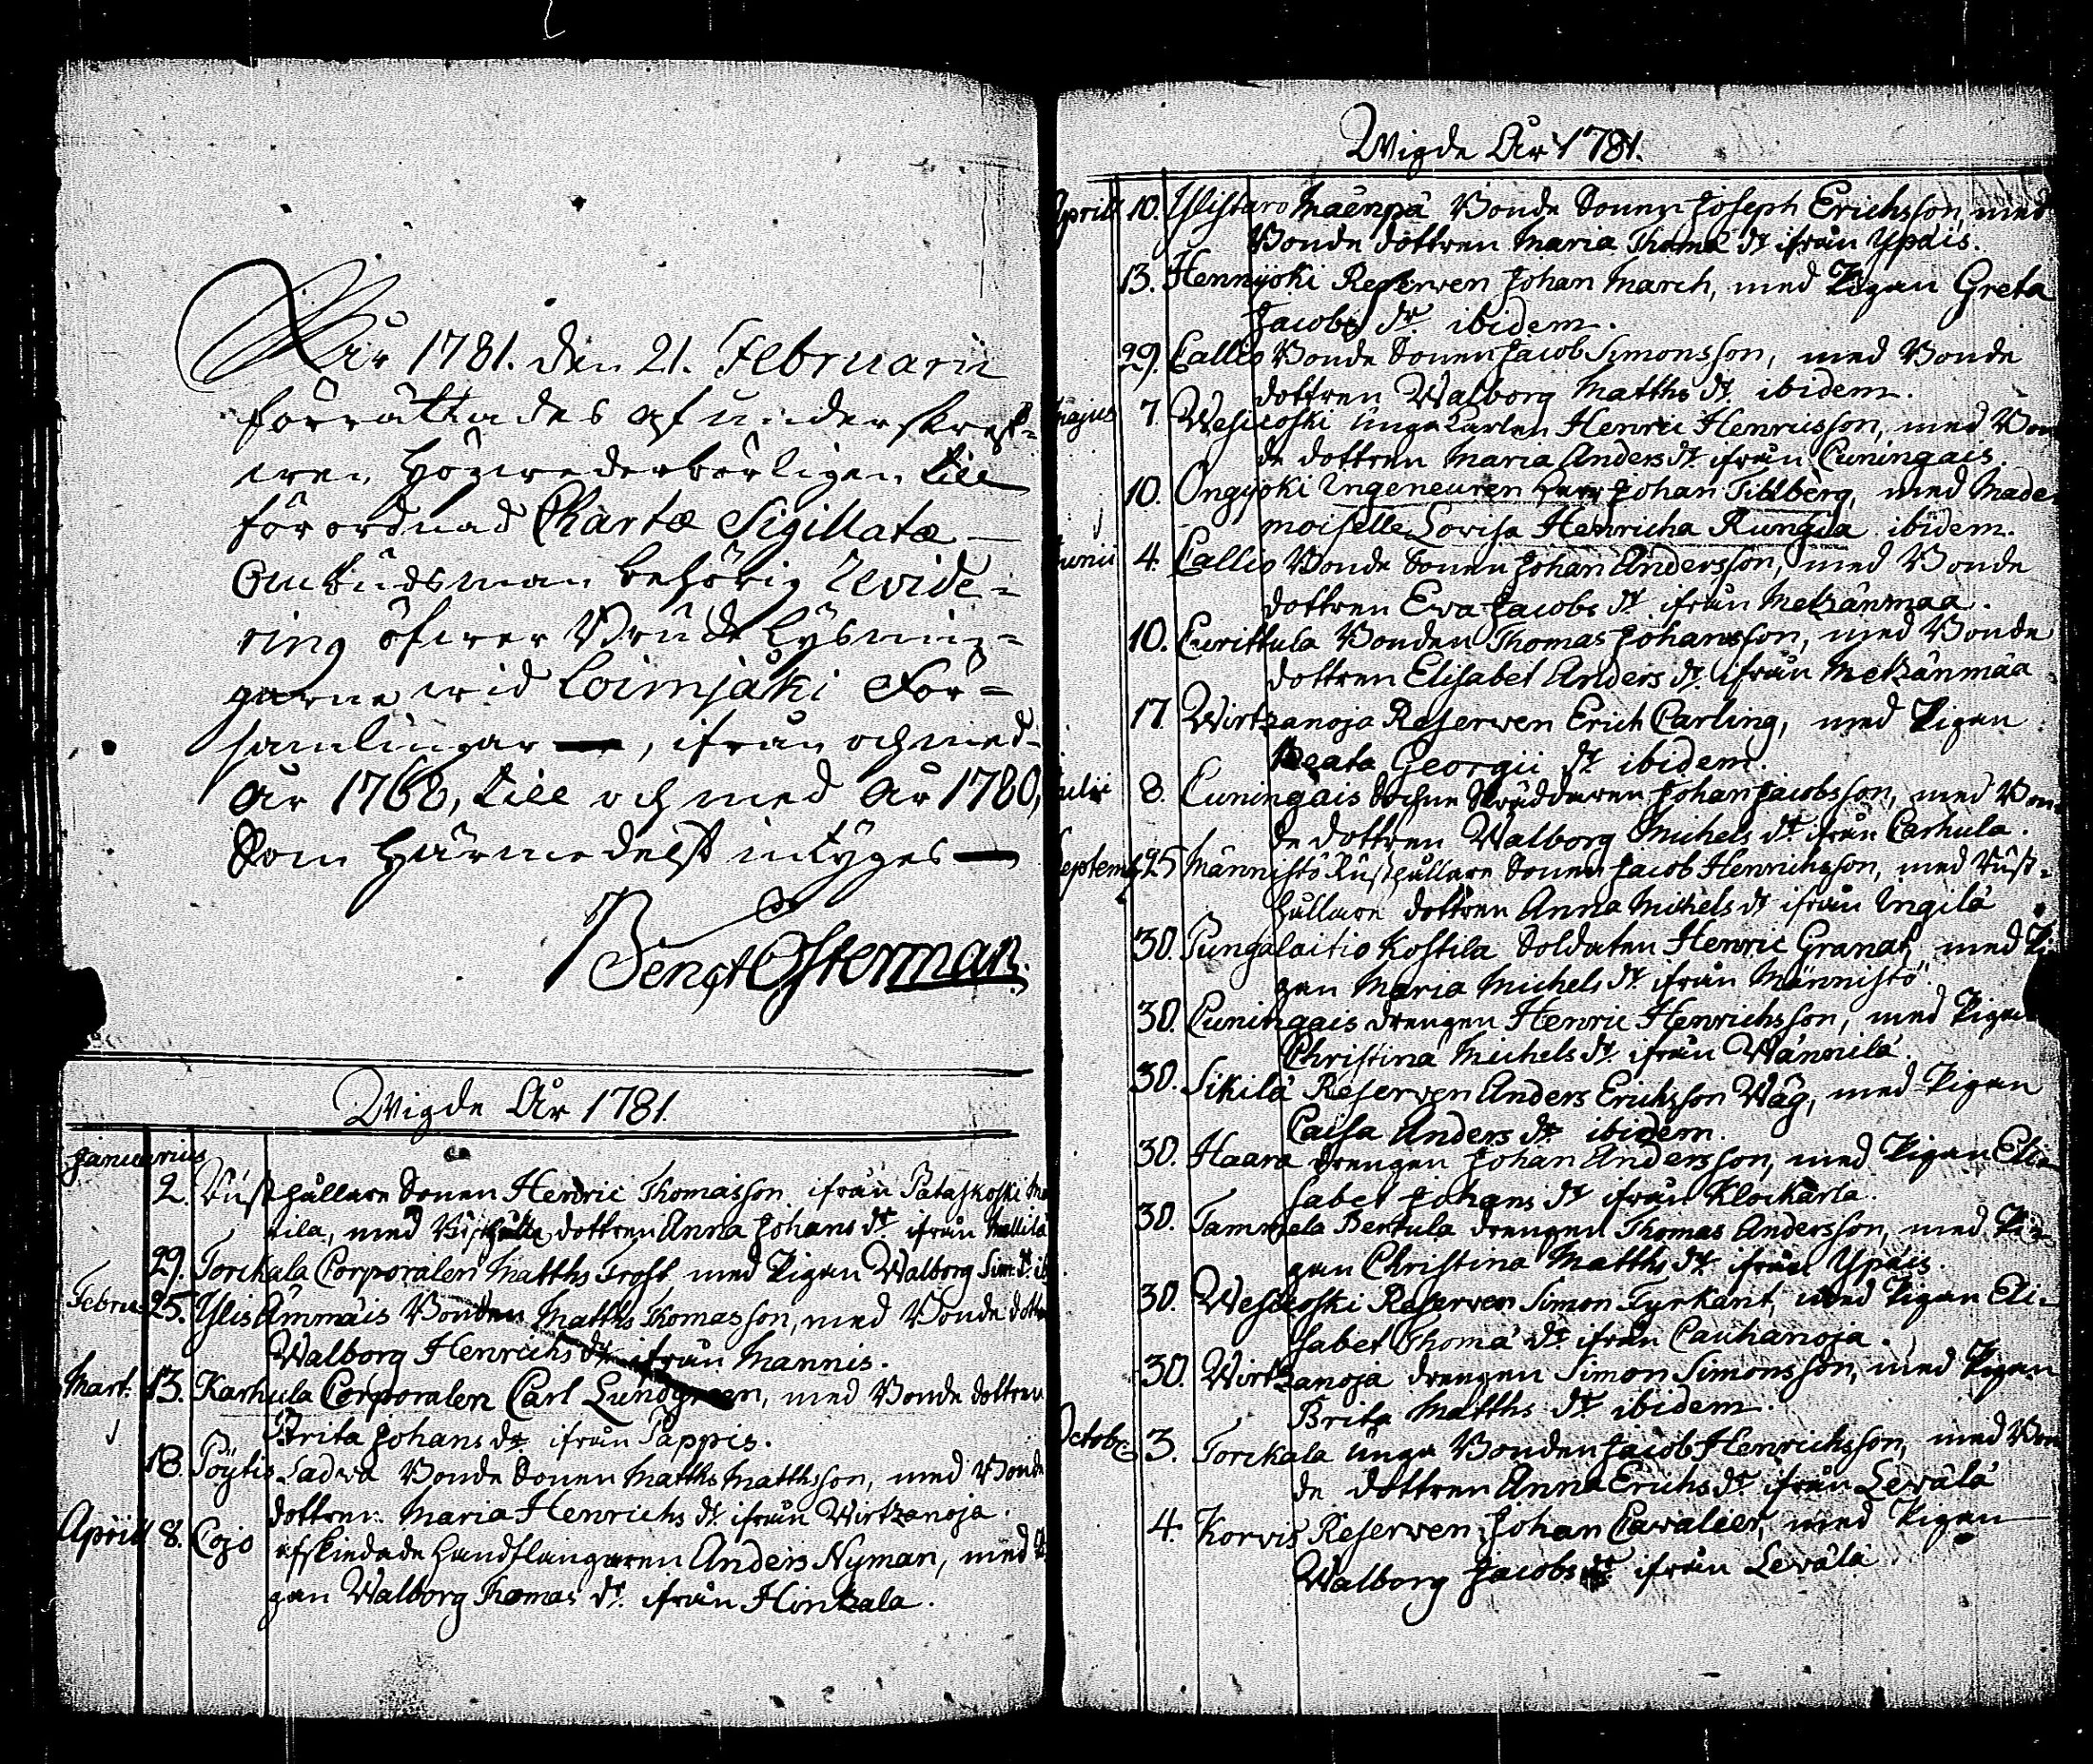 År 1781. den 21. Februarii
förrättades af underskref-
wen högwederbörligen till
förordnad Chartæ Sigillatæ
Ombudsman behörig Revide-
ring öfwer Brude Lysning-
garne wid Loimjåki För-
samlingar, ifrån och med
År 1768, till och med År 1780,
Som härmedelst intyges
Bengt Österman.
Wigde År 1781.
Januarius
2. Rusthållare Sonen Henric Thomasson ifrån Pataskoski
tila, med Rusthålle dottren Anna Johans dr. ifrån Mallila
29. Torckala Corporalen Matths Frost med Pigan Walborg Sim. dr. ib
Febru. 25. Ylis Ammäis Bonden Matths Thomasson, med Bonde dottr
Walborg Henrichs dr. ifrån Mannis.
Mart. 13. Karhula Corporalen Carl Lundgreen, med Bonde dottren
Brita Johans dr. ifrån Pappis.
18. Pöytis Ladva Bonde Sonen Matths Matthsson, med Bonde
dottren Maria Henrichs dr. ifrån Wirtzanoja.
Aprill 8. Cojo afskiedade handtlangaren Anders Nyman, med Pi
gan Walborg Thomas dr. ifrån Hirtzala.
Wigde År 1781.
Aprill 10. Ylistaro Mäenpä Bonde Sonen Joseph Erichsson, med
Bonde dottren Maria Thomæ dr. ifrån Ypäis.
13. Hennijoki Reserven Johan March, med Pigan Greta
Jacobs dr. ibidem.
29. Callio Bonde Sonen Jacob Simonsson, med Bonde
dottren Walborg Matths dr. ibidem.
Majus 7. Wesicoski Unga Karlen Henric Henricsson, med Bon
de dottren Maria Anders dr. ifrån Cuningais.
10. Ongijoki Ingeneuren Herr Johan Tillberg, med Made
moiselle Lovisa Henricha Rungia ibidem.
Junii 4. Callio Bonde Sonen Johan Andersson, med Bonde
dottren Eva Jacobs dr. ifrån Metzänmaa.
10. Curittula Bonden Thomas Johansson, med Bonde
dottren Elisabet Anders dr. ifrån Metzänmaa
17. Wirtzanoja Reserven Erich Carling, med Pigan
Beata Georgii dr. ibidem.
Julii 8. Cuningais Sochne Skräddaren Johan Jacobsson, med Bon
de dottren Walborg Michels dr. ifrån Carhula.
Septemb. 25 Männistö Rusthållare Sonen Jacob Henrichsson, med Rust-
hållare dottren Anna Michels dr. ifrån Ingilä
30. Pungalaitio Kostila Soldaten Henric Granat, med Pi
gan Maria Michels dr. ifrån Männistö.
30. Cuningais drengen Henric Henrichsson, med Pigan
Christina Michels dr. ifrån Wännilä.
30. Sikilä Reserven Anders Erichsson Wåg, med Pigan
Caisa Anders dr. ibidem.
30. Haara drengen Johan Andersson, med Pigan Eli-
sabet Johans dr. ifrån Klockarla.
30. Tammela Bertula drengen Thomas Andersson, med Pi-
gan Christina Matths dr. ifrån Ypäis.
30. Wesicoski Reserven Simon Tyrkant, med Pigan Eli-
sabet Thomæ dr. ifrån Cauhanoja.
30. Wirtzanoja drengen Simon Simonsson, med Pigan
Brita Matths dr. ibidem.
Octobr. 3. Torckala unga Bonden Jacob Henrichsson, med Bon
de dottren Anna Erichs dr. ifrån Levälä
4. Korvis Reserven Johan Cavalier, med Pigan
Walborg Jacobs dr. ifrån Levälä